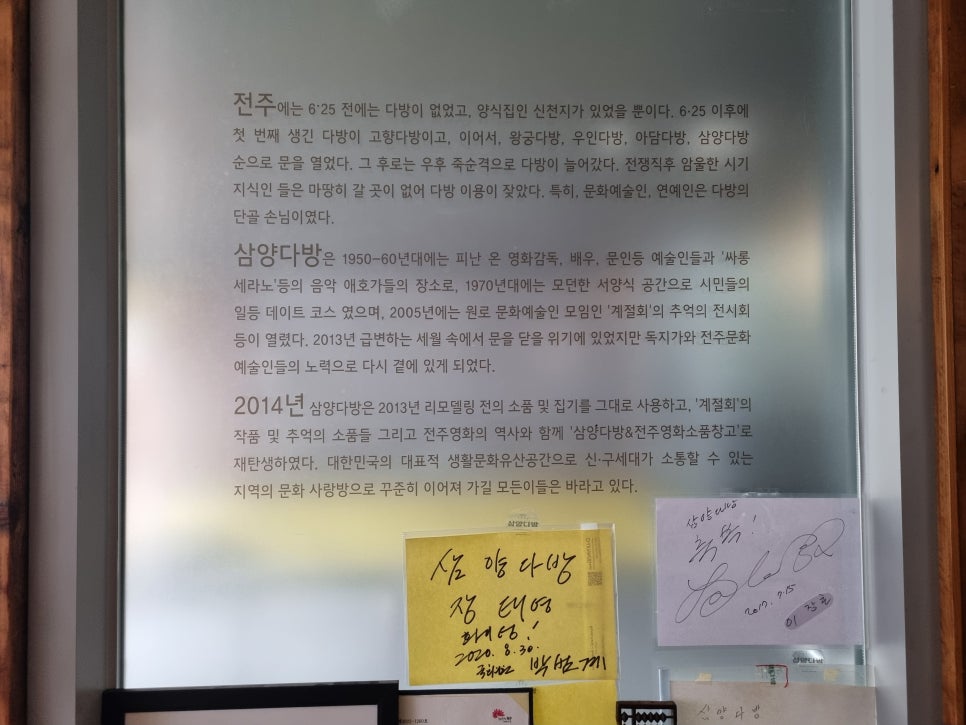 전주에는 6·25 전에는 다방이 없었고, 양식집인 신천지가 있었을 뿐이다. 6·25 이후에
첫 번째 생긴 다방이 고향다방이고, 이어서, 왕궁다방, 우인다방, 아담다방, 삼양다방
순으로 문을 열었다. 그 후로는 우후 죽순격으로 다방이 늘어갔다. 전쟁직후 암울한 시기
지식인 들은 마땅히 갈 곳이 없어 다방 이용이 잦았다. 특히, 문화예술인, 연예인은 다방의
단골 손님이였다.
삼양다방은 1950-60년대에는 피난 온 영화감독, 배우, 문인등 예술인들과 '싸롱
세라노'등의 음악 애호가들의 장소로, 1970년대에는 모던한 서양식 공간으로 시민들의
일등 데이트 코스 였으며, 2005년에는 원로 문화예술인 모임인 '계절회'의 추억의 전시회
등이 열렸다. 2013년 급변하는 세월 속에서 문을 닫을 위기에 있었지만 독지가와 전주문화
예술인들의 노력으로 다시 곁에 있게 되었다.
2014년 삼양다방은 2013년 리모델링 전의 소품 및 집기를 그대로 사용하고, '계절회'의
작품 및 추억의 소품들 그리고 전주영화의 역사와 함께 '삼양다방&전주영화소품창고'로
재탄생하였다. 대한민국의 대표적 생활문화유산공간으로 신·구세대가 소통할 수 있는
지역의 문화 사랑방으로 꾸준히 이어져 가길 모든이들은 바라고 있다.
삼양다방
삼양다방
장태영
화이팅!
2020. 8. 30.
박범계
삼양다방
2017. 7.15
이장호
삼양다방
삼양다방